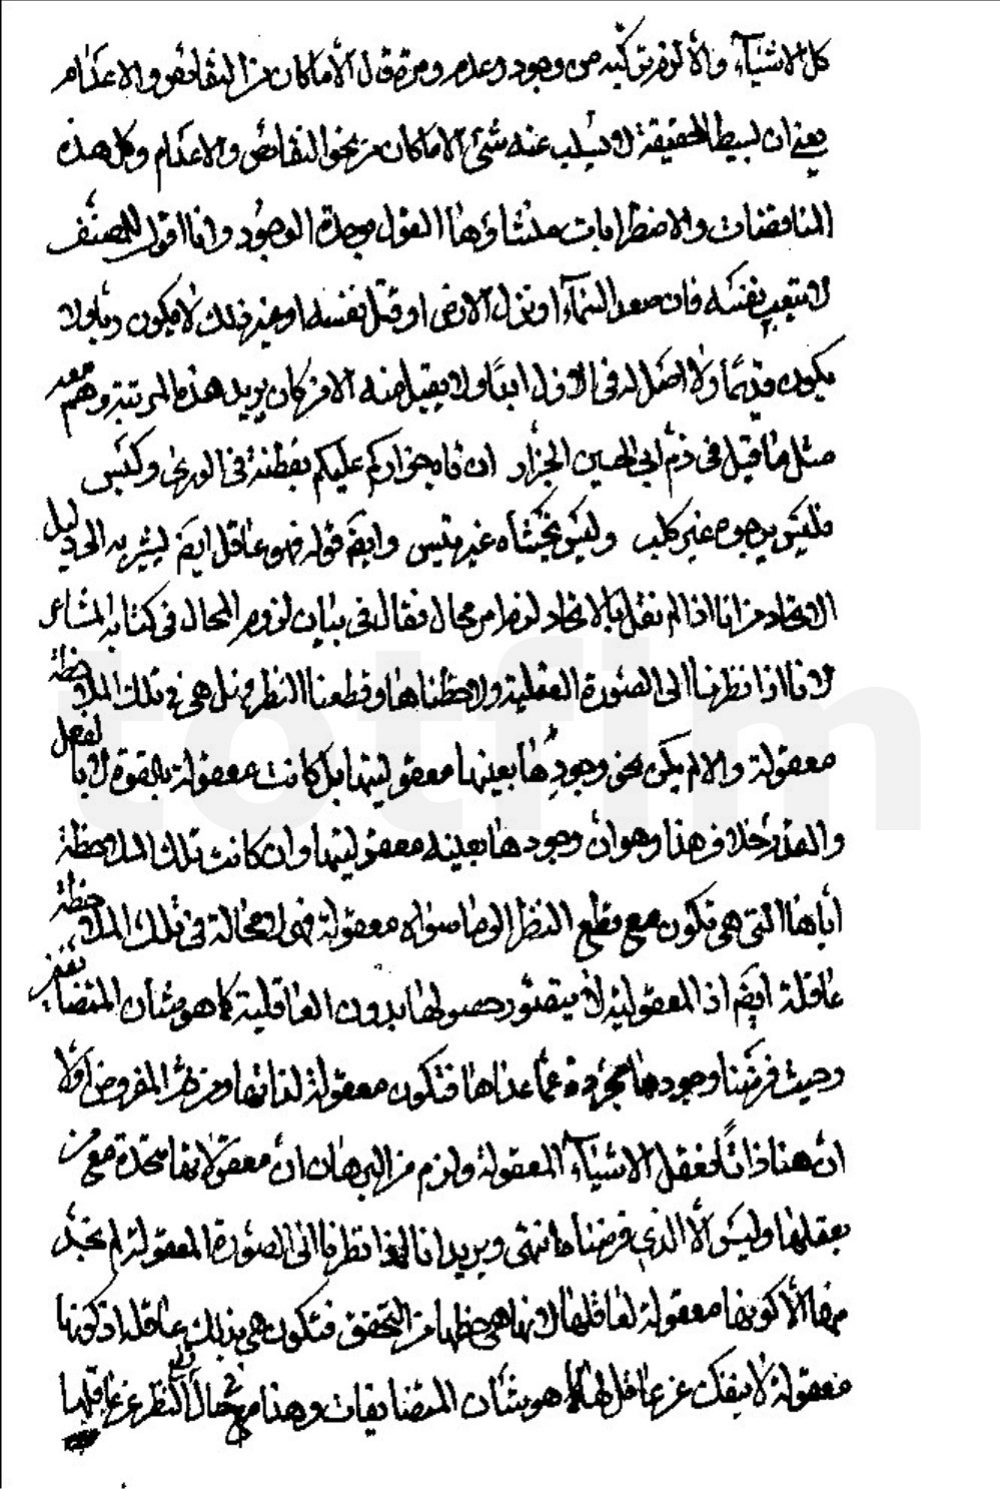 كل الاشياء والا لزم تركبه من وجود وعدم ومرة قال الا ما كان من النقائص والاعدام
يعني ان بسيط الحقيقة لا يسلب عنه شئ الا ما كان من نحو النقائص والاعدام وكل هذه
المناقضات والاضطرابات منشاؤها القول بوحدة الوجود وانا اقول للمصنف
لا تتعب نفسك فان صعد السماء او نزل الارض او قتل نفسه او غير ذلك لا يكون ربا ولا
يكون قديما ولا اصل له في الازل ابدا ولا يقبل منه الا من كان يريد هذه المرتبة وهم معه
مثل ما قيل في ذم ابي الحسين الجزار ان تاه جزاركم عليكم بفطنة في الورى وكيس
فليس يرجوه غير كلب وليس يخشاه غير تيس وايضَ قوله فهو عاقل ايضَ يشير به الى دليل
الاتحاد من انا اذا لم نقل بالاتحاد لزم امر محال فقال في بيان لزوم المحال في كتابه المشاعر
لانا اذا نظرنا الى الصورة العقلية ولاحظناها وقطعنا النظر هل هي في تلك الملاحظة
معقولة والا لم يكن نحو وجودها بعينها معقوليتها بل كانت معقولة بالقوة لا بالفعل
والمقدر خلاف هذا وهو ان وجودها بعينه معقوليتها وان كانت تلك الملاحظة
اياها التي هي تكون مع قطع النظر الى ما سواه معقولة فهي لا محالة في تلك الملاحظة
عاقلة ايضَ اذ المعقولية لا يتصور حصولها بدون العاقلية كما هو شأن المتضايفين
وحيث فرضنا وجودها مجردة عما عداها فتكون معقولة لذاتها ثم المفروض اولا
ان هنا ذاتا تعقل الاشياء المعقولة ولزم من البرهان ان معقولاتها متحدة مع من
يعقلها وليس الا الذي فرضناه انتهى ويريد انا اذا نظرنا الى الصورة المعقولة لم نجد
منها الا كونها معقولة لعاقلها لانها هي حظها من التحقق فتكون هي بذلك عاقلة اذ كونها
معقولة لا ينفك عن عاقل لها كما هو شأن المتضايفات وهذا في حال قطع النظر عن عاقلها